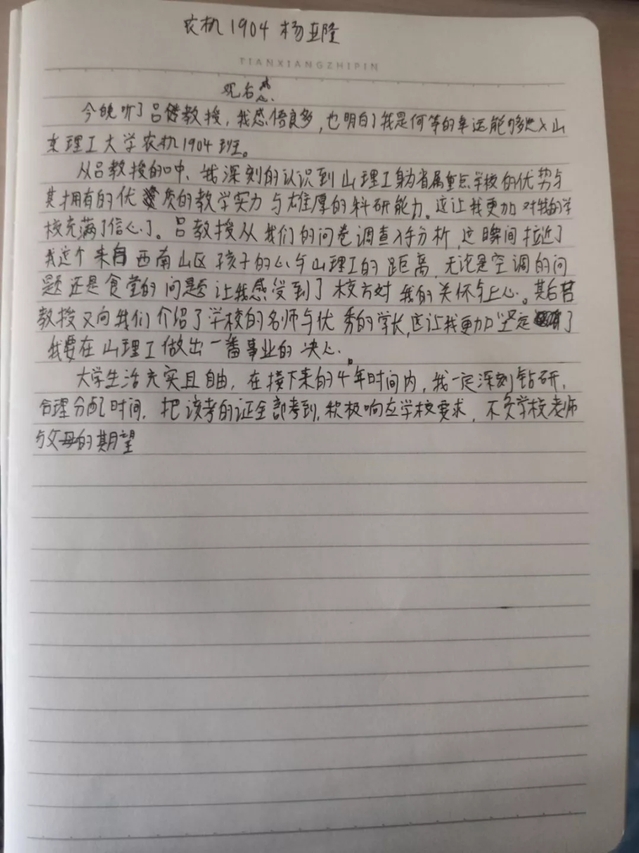 农机1904 杨亚隆
TIANXIANGZHIPIN
观后感
今晚听了吕教授,我感悟良多,也明白了我是何等的幸运能够进入山
东理工大学农机1904班。
从吕教授的口中,我深刻的认识到山理工身为省属重点学校的优势与
其拥有的优质的教学实力与雄厚的科研能力。这让我更加对我的学
校充满了信心了。吕教授从我们的问卷调查入手分析,这瞬间拉近了
我这个来自西南山区孩子的心与山理工的距离,无论是空调的问
题还是食堂的问题让我感受到了校方对我的关怀与上心。其后吕
教授又向我们介绍了学校的名师与优秀的学长,这让我更加坚定了
我要在山理工做出一番事业的决心。
大学生活充实且自由,在接下来的4年时间内,我一定深刻钻研,
合理分配时间,把该考的证全部考到,积极响应学校要求,不负学校老师
与父母的期望